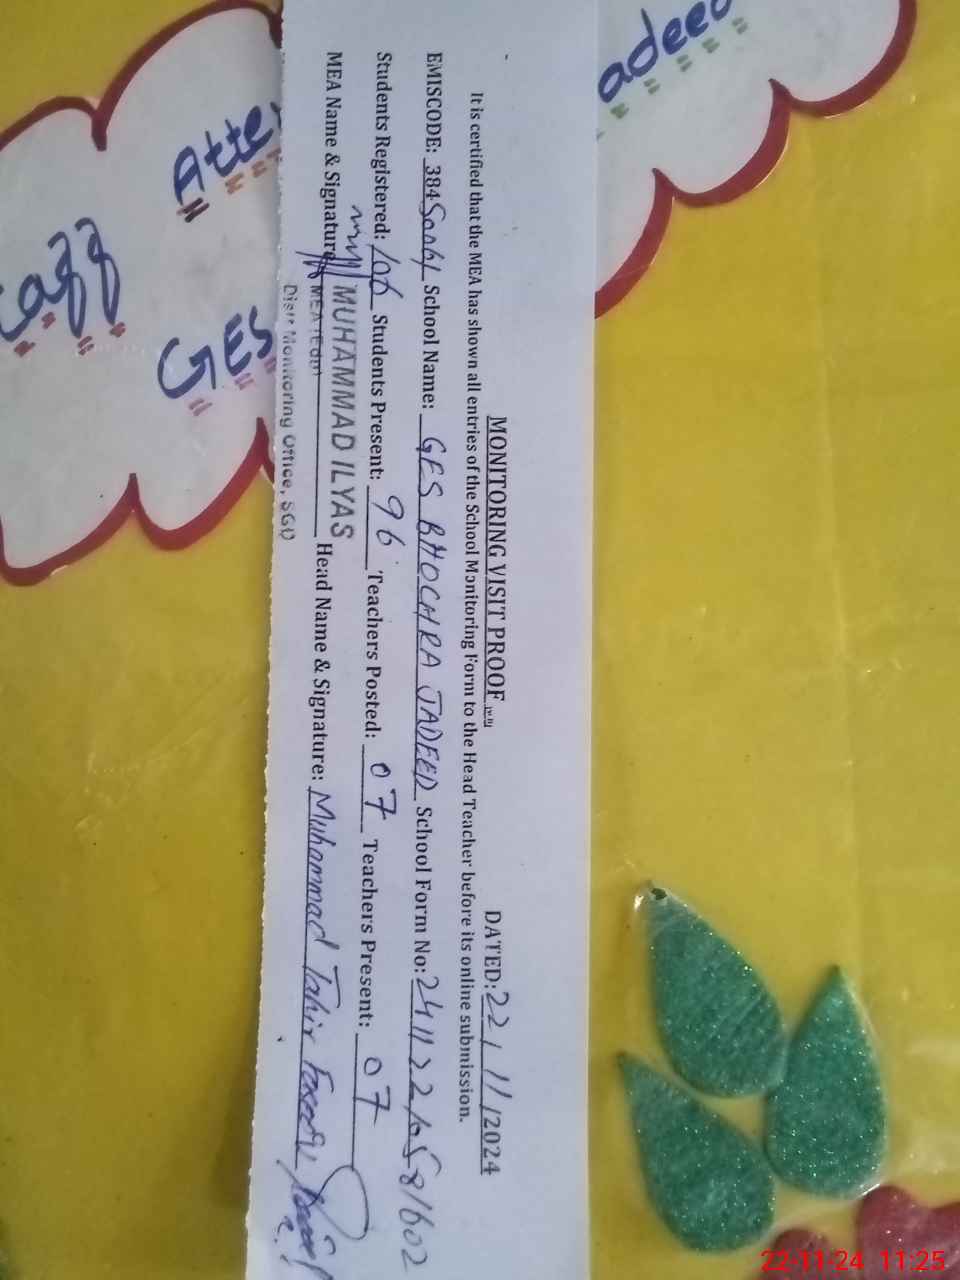 MONITORING VISIT PROOF DATED: 22/11/2024
It is certified that the MEA has shown all entries of the School Monitoring Form to the Head Teacher before its online submission.
EMISCODE: 384 School Name: GES BHOCHRA JADEED School Form No:
Students Registered: 106 Students Present: 96 Teachers Posted: 07 Teachers Present: 07
MEA Name & Signature MUHAMMAD ILYAS Head Name & Signature: Muhammad Tahir
MEA (Edu)
Distt Monitoring Office, SGD
Atte
aff
GES
adeed
22-11-24 11:25